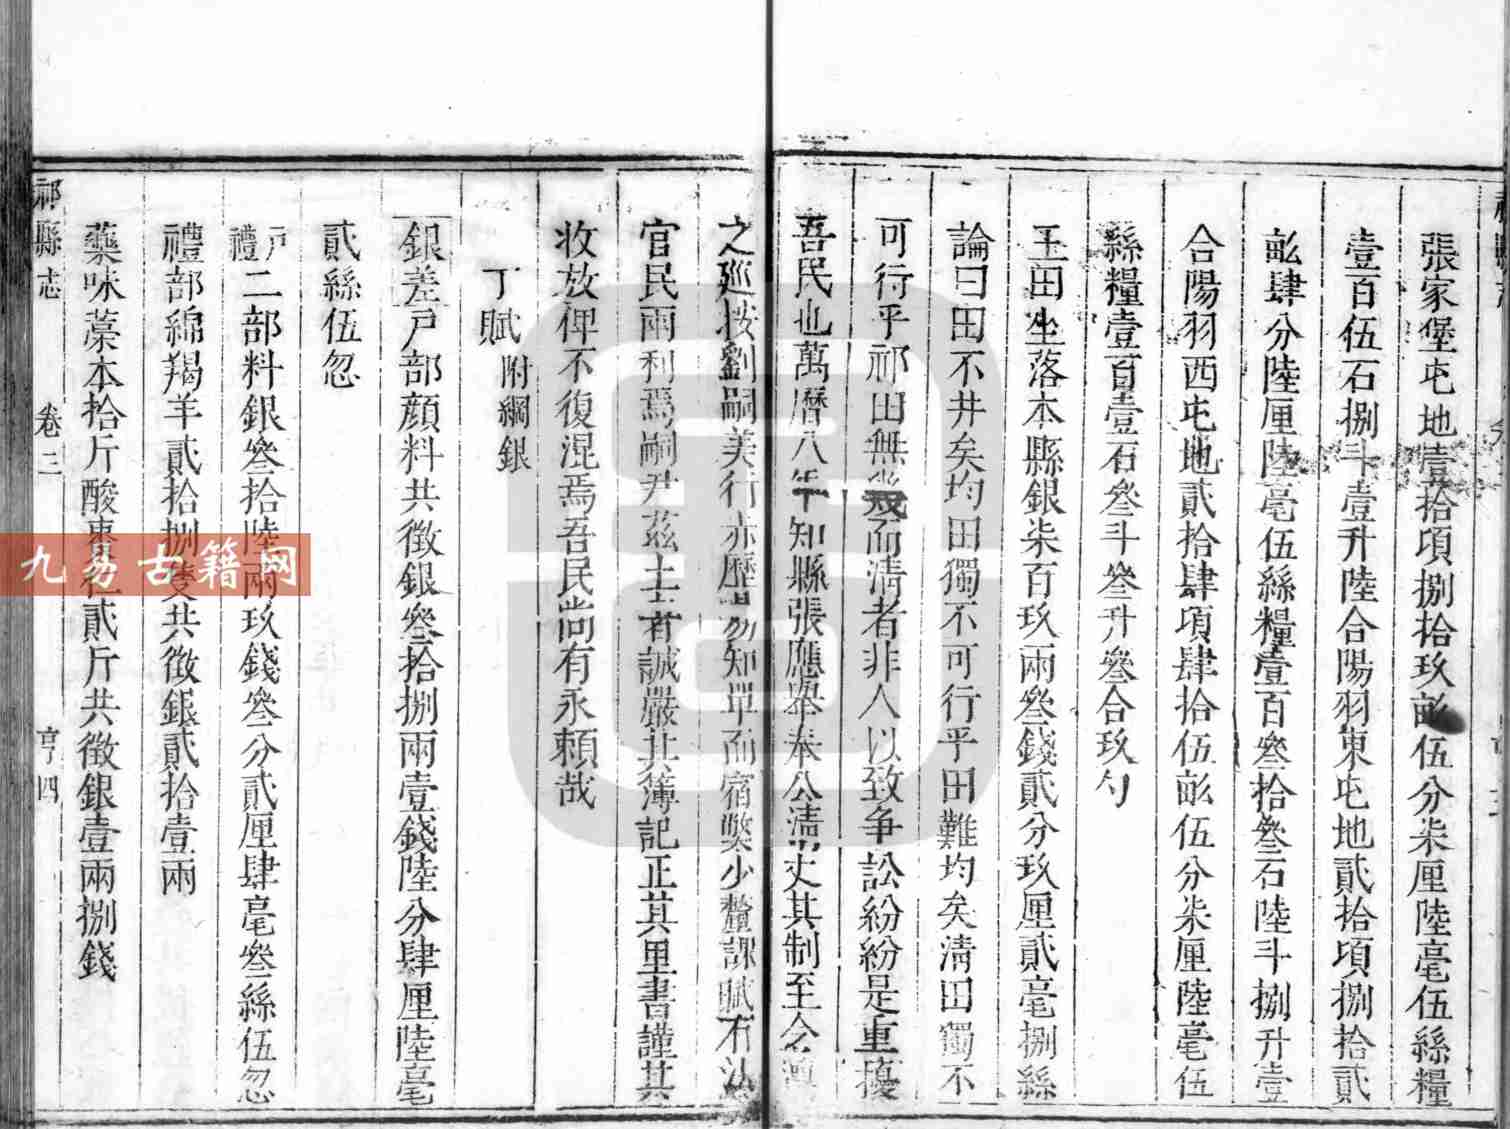 張家堡屯地壹拾項捌拾玖畝伍分柒厘陸毫伍絲糧
壹百伍石捌斗壹升陸合陽羽東屯地貳拾項捌拾貳
畝肆分陸厘陸毫伍絲糧壹百叅拾叅石陸斗捌升壹
合陽羽西屯地貳拾肆項肆拾伍畝伍分柒厘陸毫伍
絲糧壹百壹石叅斗叅升叅合玖勺
王田坐落本縣銀柒百玖兩叅錢貳分玖厘貳毫捌絲
論曰田不井矣均田獨不可行乎田難均矣淸田獨不
可行乎祁田無幾而淸者非人以致争訟紛紛是重擾
吾民也萬曆八年知縣張應舉奉公淸丈其制至今
之廵按劉嗣美行赤歷知單而宿弊少釐課賦有法
官民兩利焉嗣尹兹土者誠嚴其簿記正其里書謹其
收放俾不復混焉吾民尚有永賴哉
丁賦 附綱銀
銀差戸部顔料共徴銀叅拾捌兩壹錢陸分肆厘陸毫
貳絲伍忽
戸禮二部料銀叅拾陸兩玖錢叅分貳厘肆毫叅絲伍忽
禮部綿羯羊貳拾捌隻共徴銀貳拾壹兩
藥味藁本拾斤酸棗仁貳斤共徴銀壹兩捌錢
祁縣志 卷三 亨四
九易古籍网